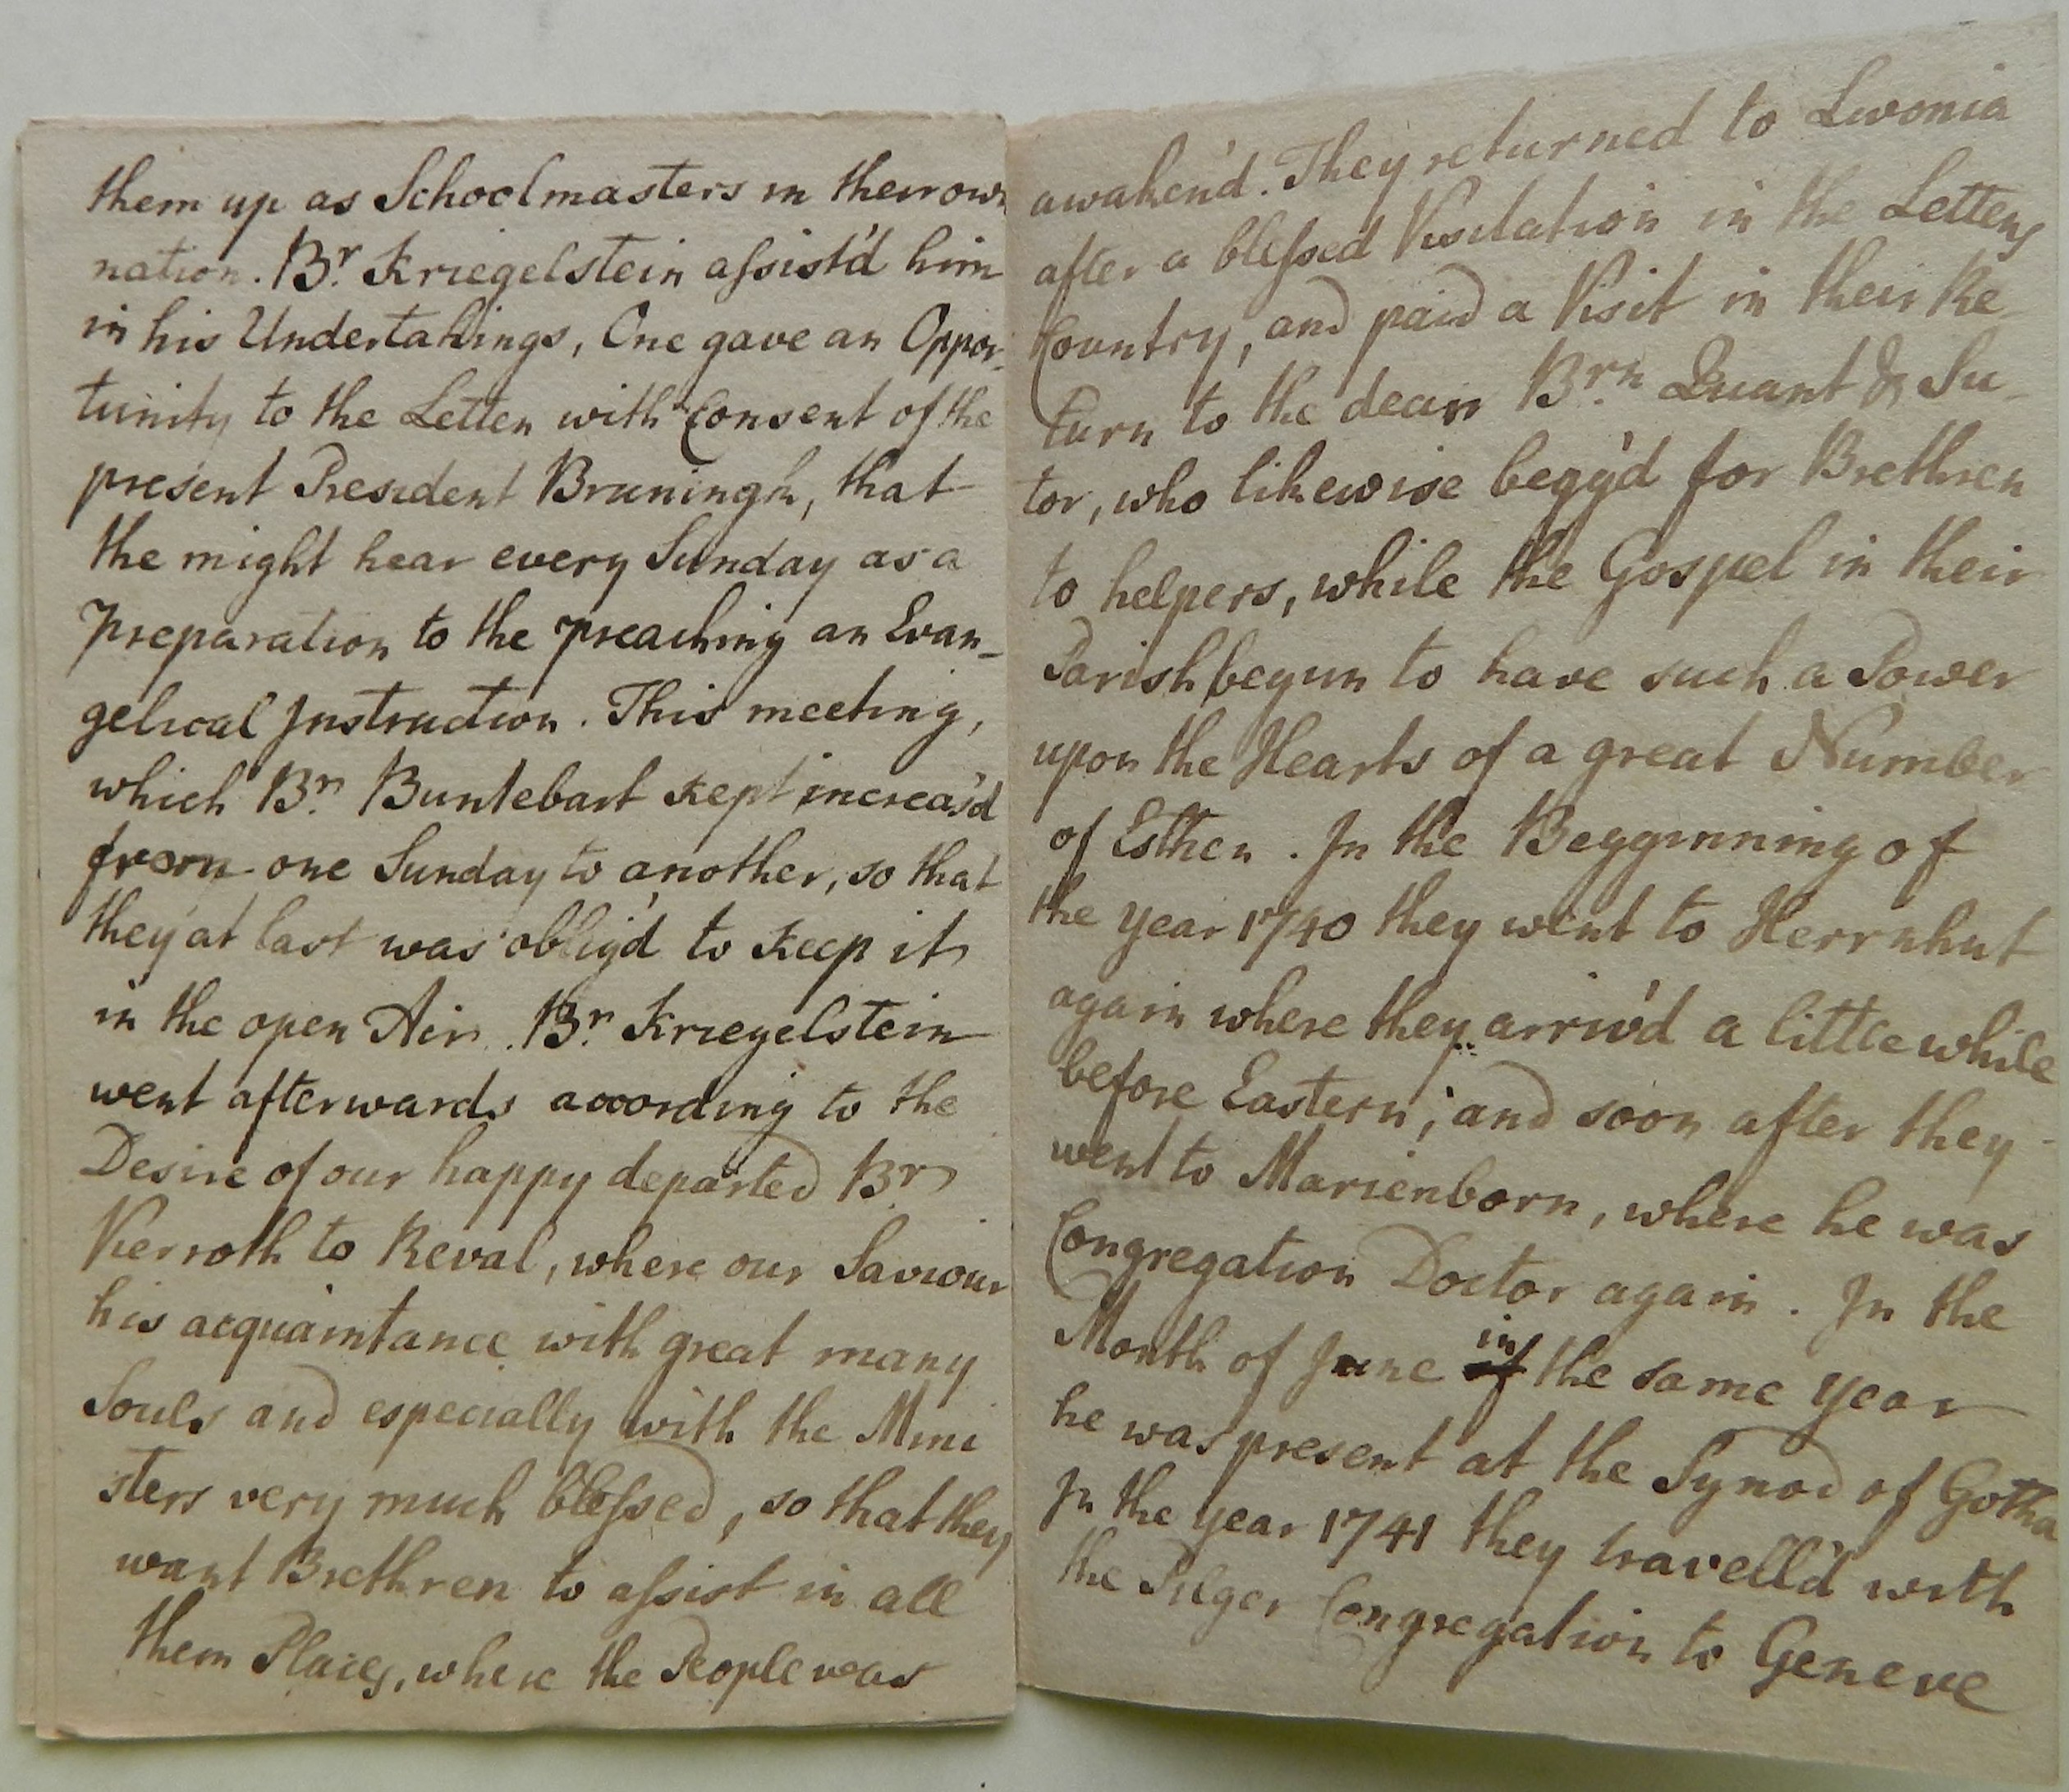 them up as Schoolmasters in their own
nation. Br. Kriegelstein assist'd him
in his Undertakings, One gave an Oppor-
tunity to the Letten with Consent of the
present President Bruningk, that
the might hear every Sunday as a
Preparation to the preaching an Evan-
gelical Instruction. This meeting,
which Br. Buntebart kept increas'd
from one Sunday to another, so that
they at last was oblig'd to keep it
in the open Air. Br. Kriegelstein
went afterwards according to the
Desire of our happy departed Br.
Vierroth to Reval, where our Saviour
his acquaintance with great many
Souls and especially with the Mini
sters very much blessed, so that they
want Brethren to assist in all
them Places, where the People was
awaken'd. They returned to Livonia
after a blessed Visitation in the Lettens
Country, and paid a Visit in their Re-
turn to the dear Brn. Quant & Su-
tor, who likewise begg'd for Brethren
to helpers, while the Gospel in their
Parish begun to have such a Power
upon the Hearts of a great Number
of Esthen. In the Begginning of
the year 1740 they went to Herrnhut
again where they arriv'd a little while
before Eastern; and soon after they
went to Marienborn, where he was
Congregation Doctor again. In the
Month of June in the same year
he was present at the Synod of Gotha
In the year 1741 they travell'd with
the Pilger Congregation to Geneve